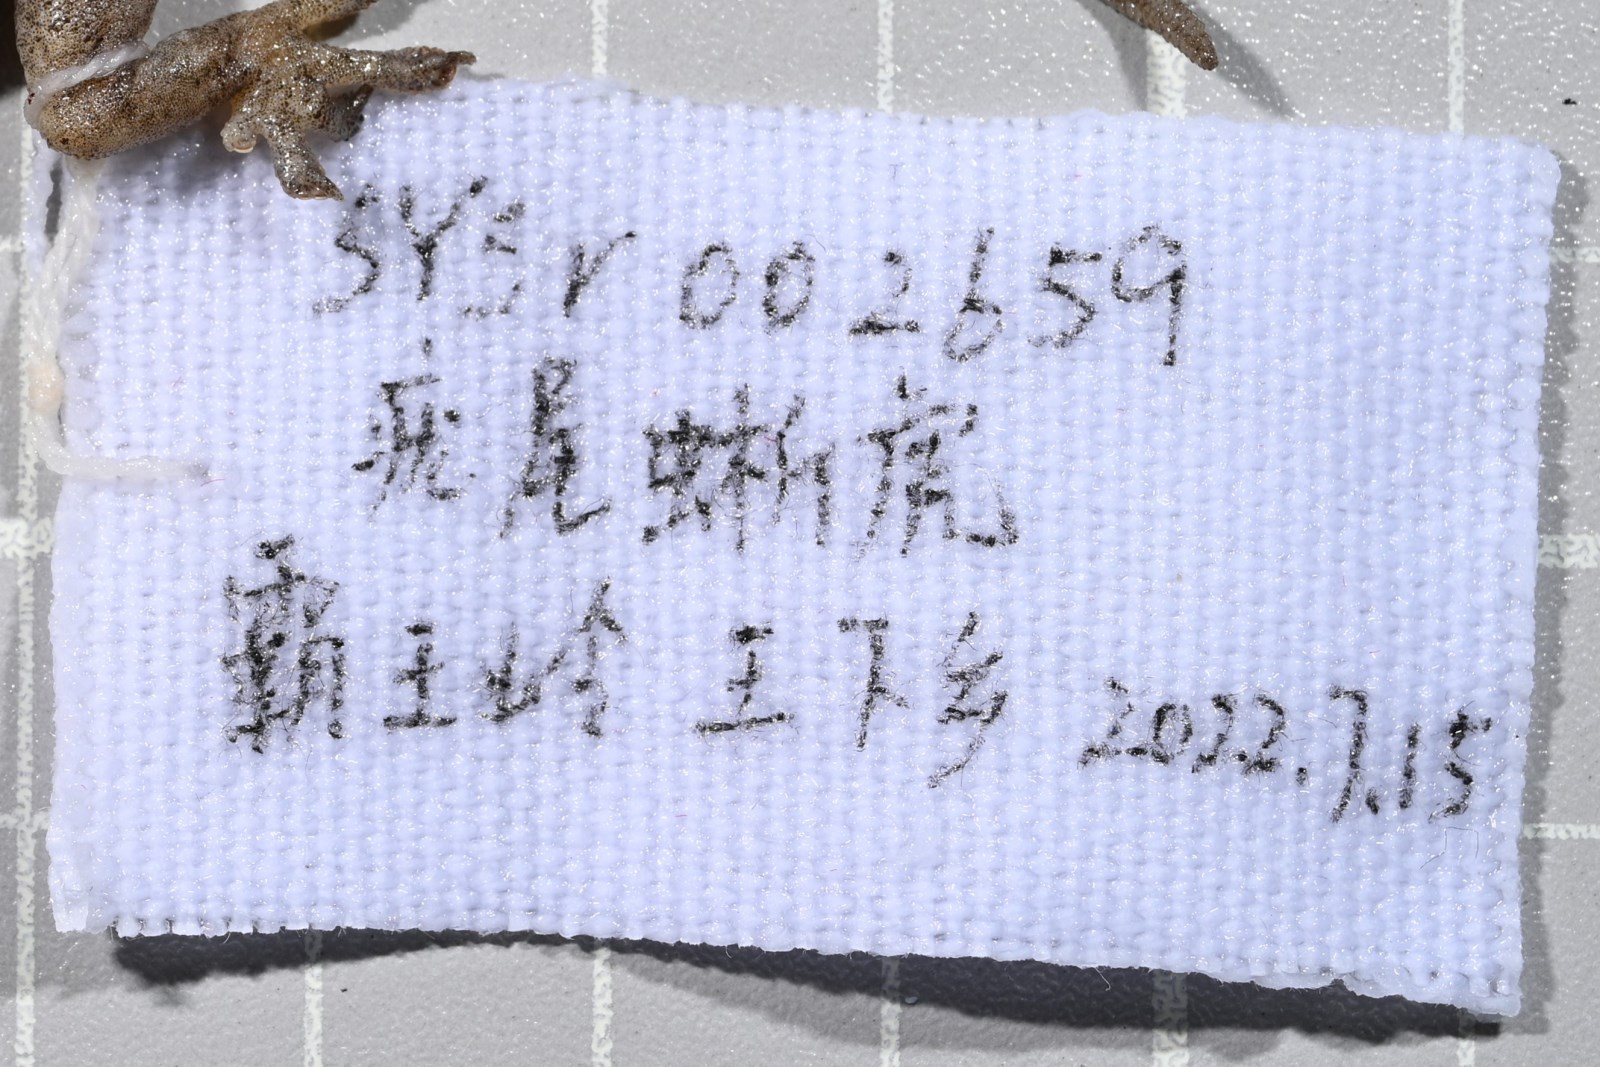 SYS r 002659
疣尾蜥虎
霸王岭 王下乡 2022.7.15